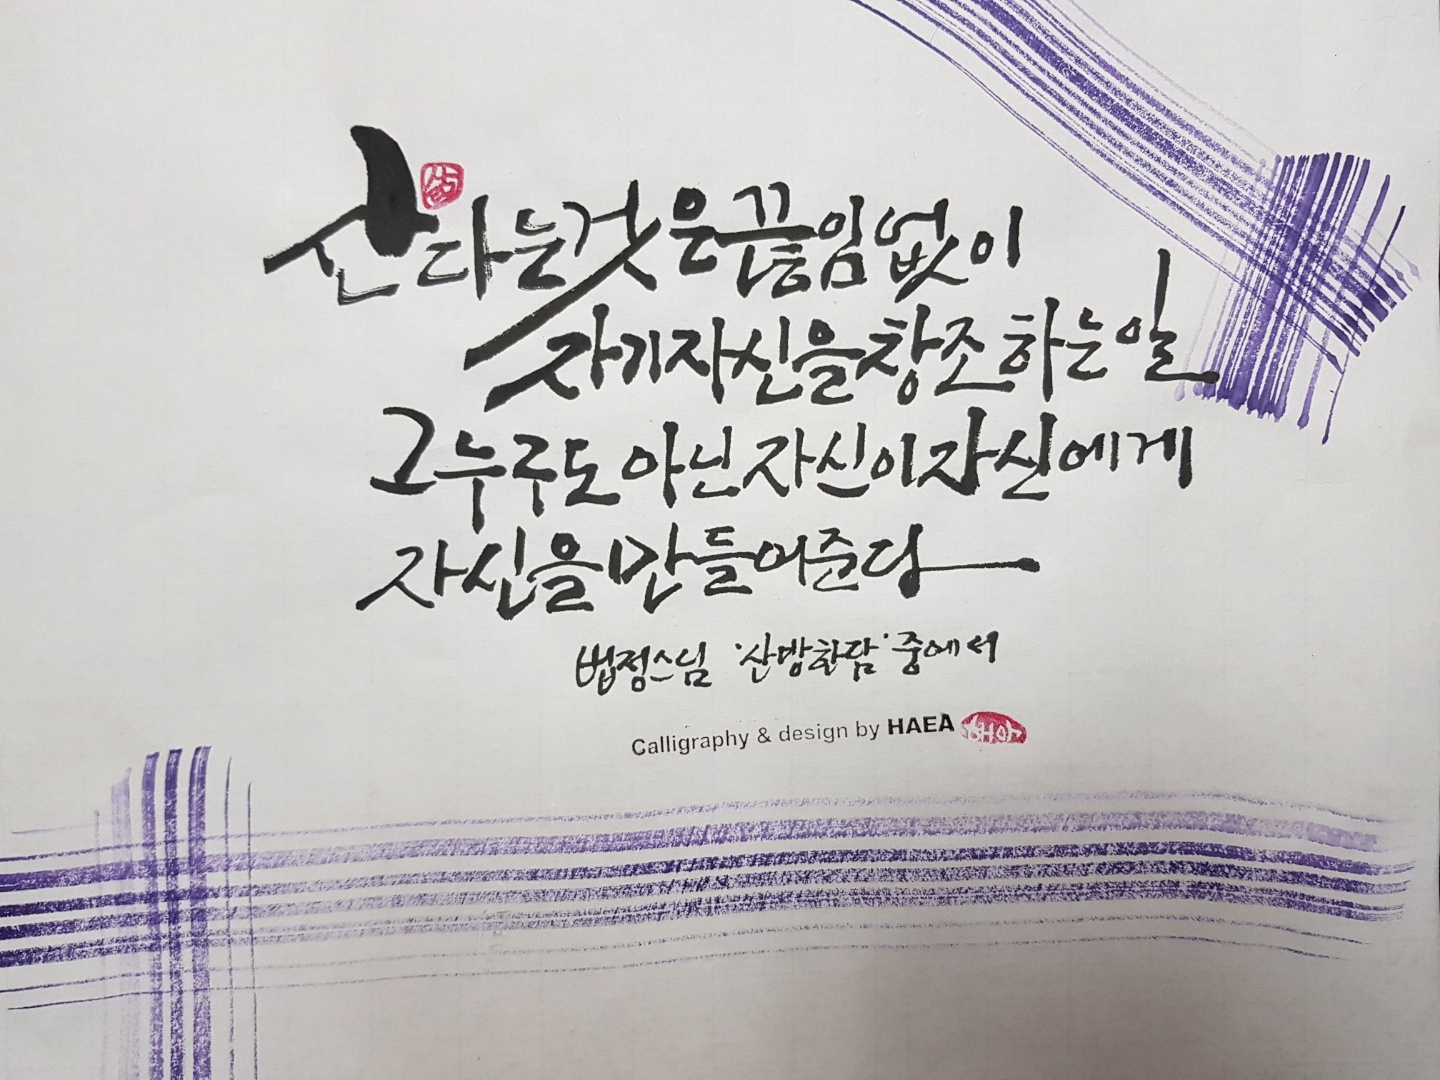 산다는것은 끊임없이
자기자신을 창조하는 일
그 누구도 아닌 자신이 자신에게
자신을 만들어준다
법정스님 '산방한담' 중에서
Calligraphy & design by HAEA
해아